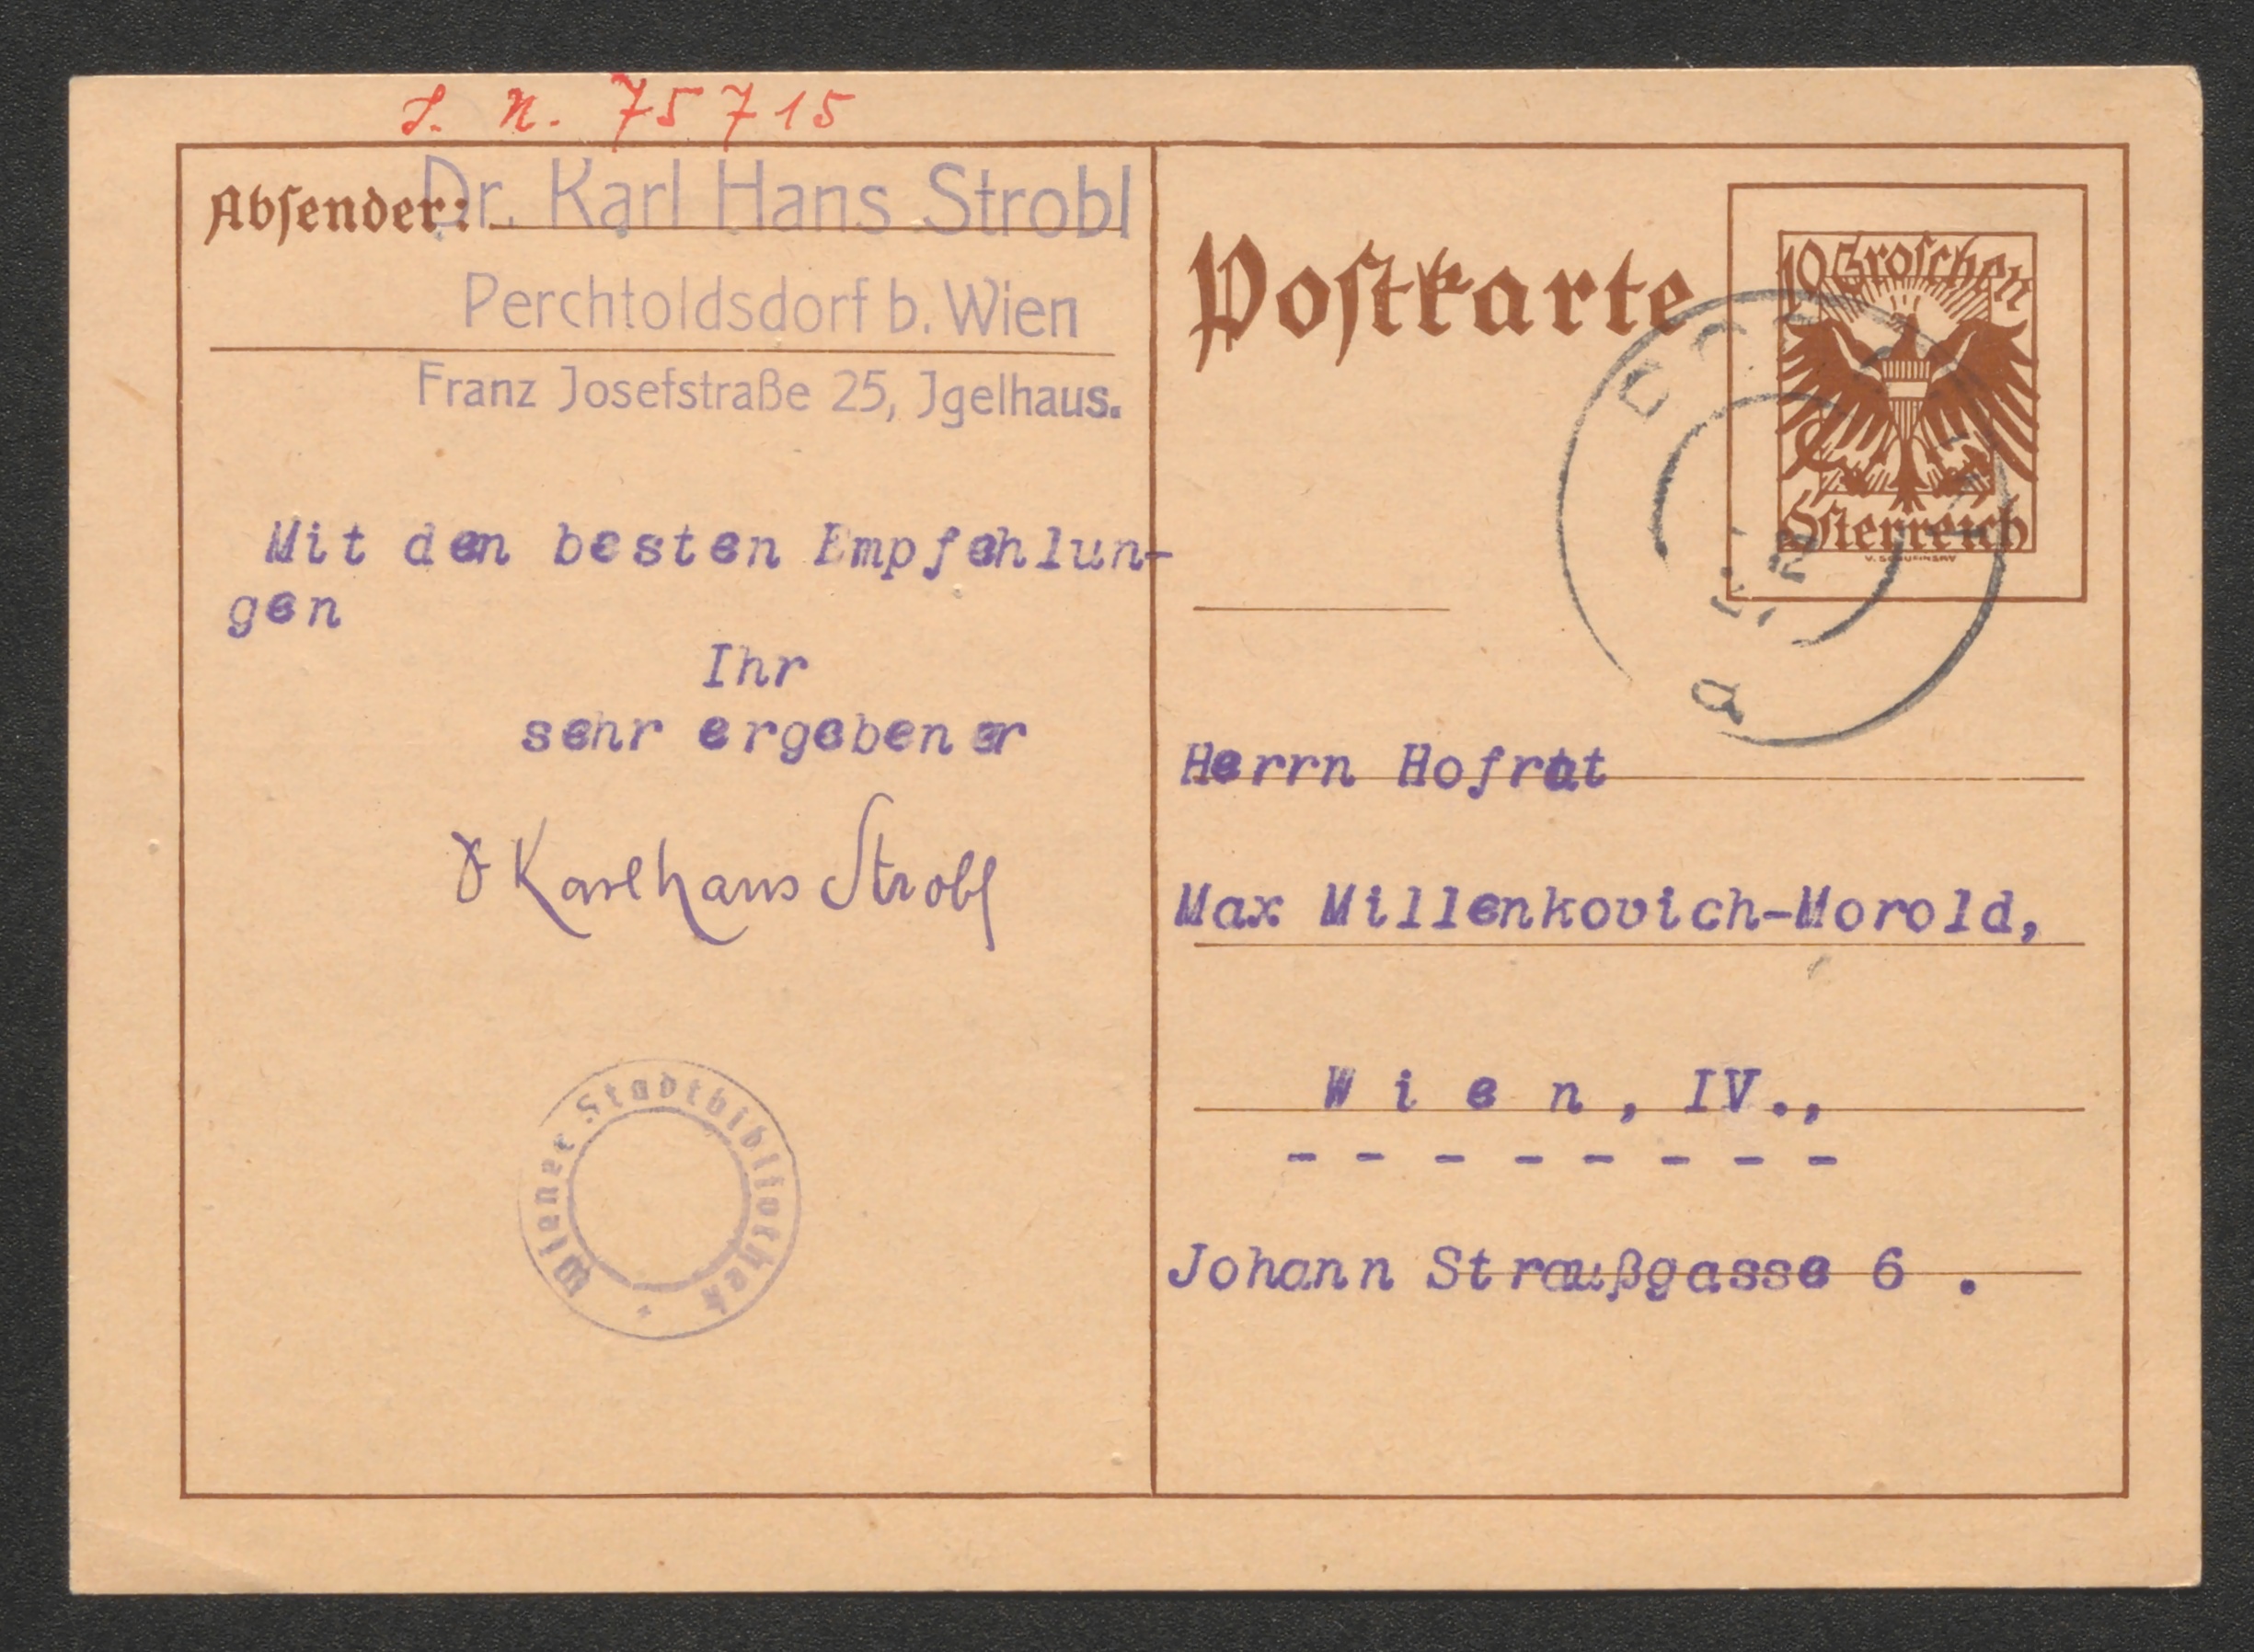 I. N. 75715
Absender: Dr. Karl Hans Strobl
Perchtoldsdorf b. Wien
Franz Josefstraße 25, Igelhaus.
Mit den besten Empfehlun-
gen
Ihr
sehr ergebener
Dr Karl hans Strobl
Wiener Stadtbibliothek
Postkarte
10 Groschen
Österreich
Herrn Hofrat
Max Millenkovich-Morold,
W i e n , IV.,
- - - - - - - -
Johann Straußgasse 6 .